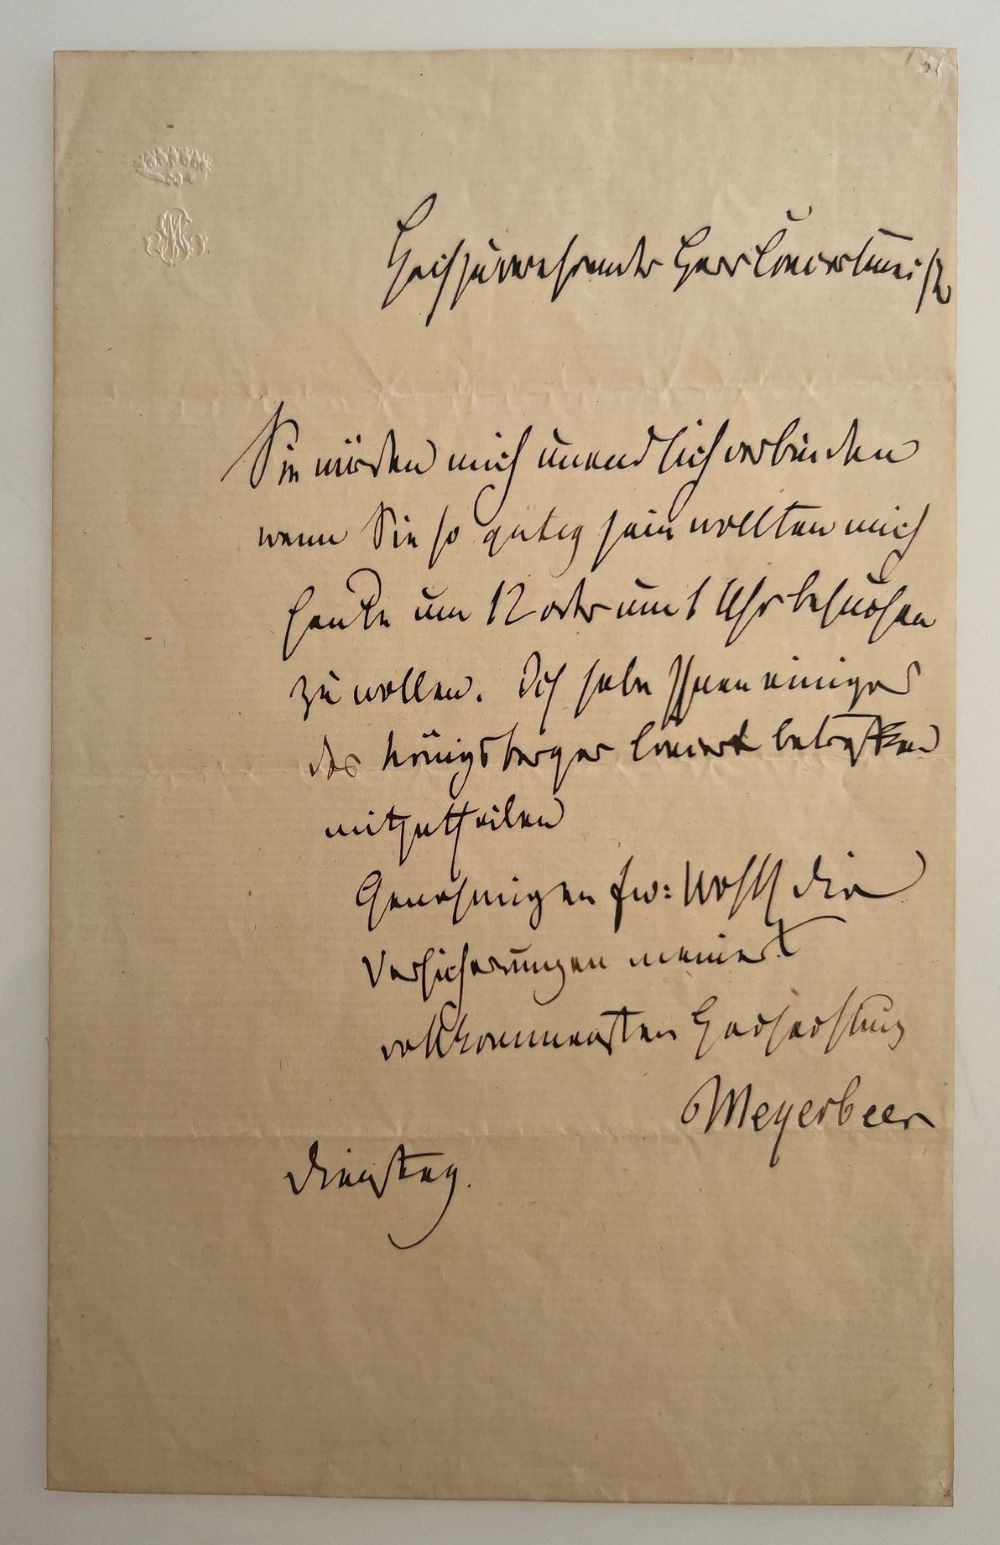 Hochzuverehrender Herr Concertmeister
Sie würden mich unendlich verbinden
wenn Sie so gütig sein wollten mich
heute um 12 oder um 1 Uhr besuchen
zu wollen. Ich habe Ihnen einiges
das Königsberger Concert betreffend
mitzutheilen
Genehmigen Ew: Wohlg die
Versicherungen meiner
vollkommensten Hochachtung
Meyerbeer
Dienstag.